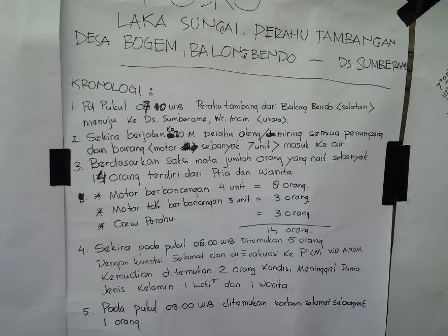 POSKO
LAKA SUNGAI. PERAHU TAMBANGAN
DESA BOGEM, BALONGBENDO - DS SUMBERAME
KRONOLOGI :
1. Pd Pukul WIB Perahu tambang dari Balong Bendo <selatan>
menuju Ke Ds. Sumberame, Wr. <utara>
2. Sekira berjalan 20 M perahu oleng / miring semua penumpang
dan barang <motor sebanyak 7 unit> masuk ke air
3. Berdasarkan saksi mata jumlah orang yang naik sebanyak
14 orang terdiri dari Pria dan Wanita
* Motor berboncengan 4 unit = 8 orang
* Motor tdk berboncengan 3 unit = 3 orang
* Crew Perahu = 3 orang
14 orang
4. Sekira pada pukul 08.00 WIB Ditemukan 5 orang
Dengan kondisi Selamat dan di Evakuasi Ke
Kemudian ditemukan 2 orang Kondisi Meninggal Dunia
Jenis Kelamin 1 Laki² dan 1 wanita.
5. Pada pukul 09.00 WIB ditemukan korban selamat sebanyak
1 orang